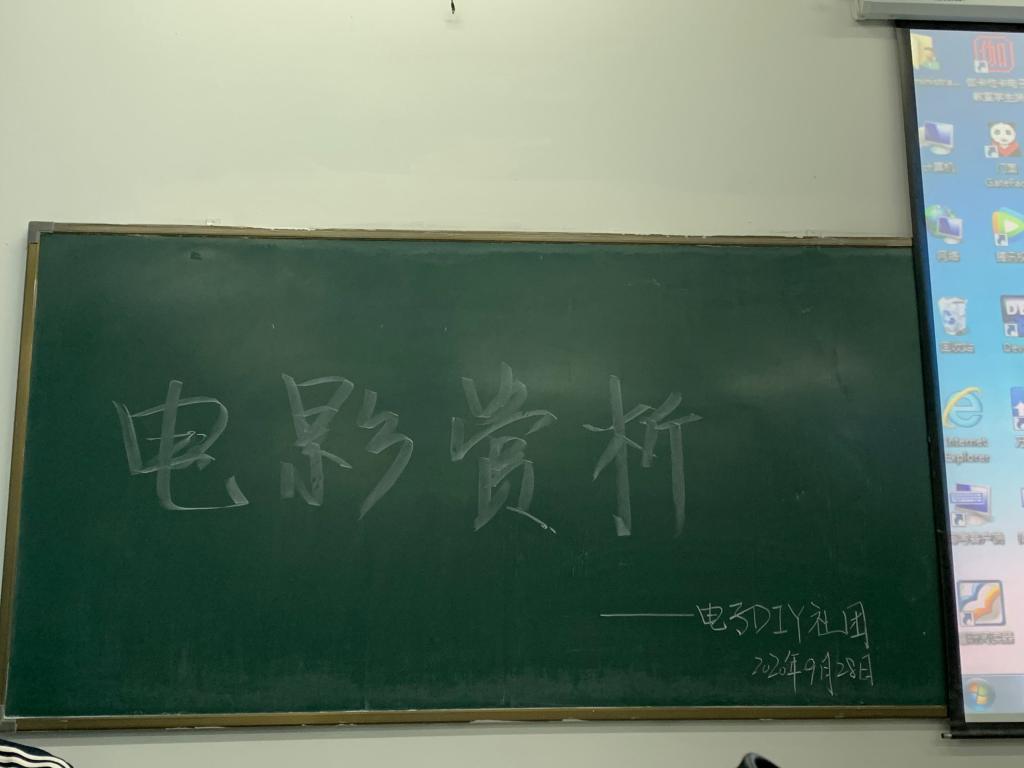 电影赏析
——电子DIY社团
2020年9月28日
计算机
网络
回收站
Internet
Explorer